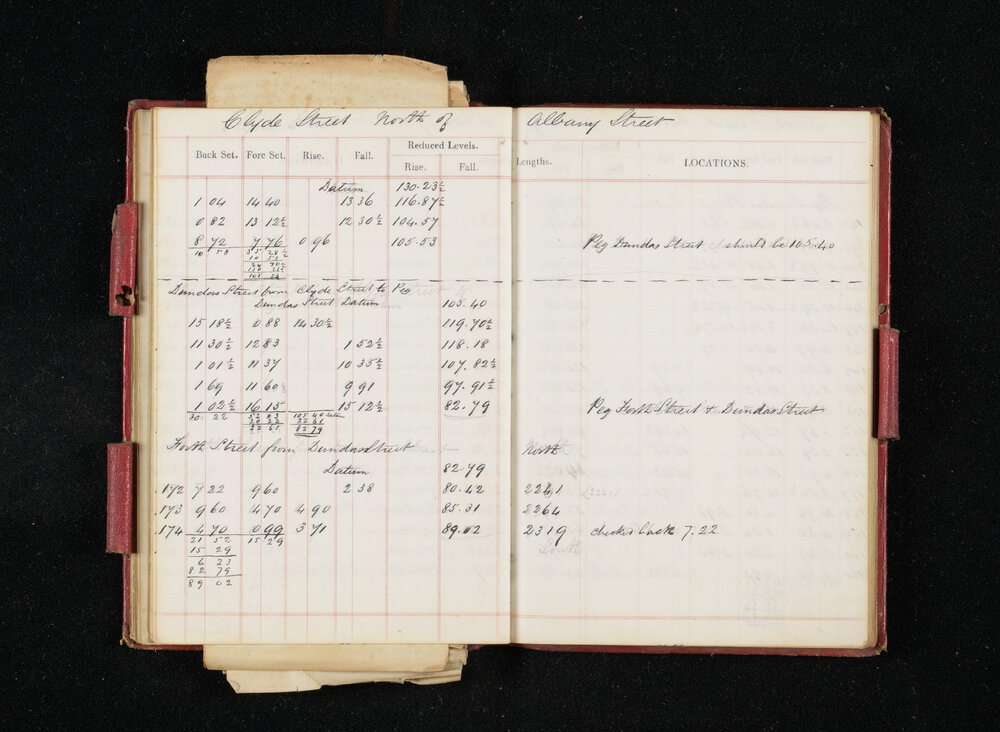 Clyde Street North of Albany Street
Reduced Levels.
Back Set. Fore Set. Rise. Fall. Rise. Fall. Lengths. LOCATIONS.
Datum 130.23½
1 04 14 40 13 36 116.87½
0 82 13 12½ 12 30½ 104.57
8 72 7 76 0 96 105.53 Peg Dundas Street should be 105.40
10 58
Dundas Street from Clyde Street to Peg
Dundas Street Datum 105.40
15 18½ 0 88 14 30½ 119.70½
11 30½ 12 83 1 52½ 118.18
1 01½ 11 37 10 35½ 107.82½
1 69 11 60 9 91 97.91½
1 02½ 16 15 15 12½ 82.79 Peg Forth Street + Dundas Street
30 22 52 83 105 40 Datum
30 22 22 61
22 61 82 79
Forth Street from Dundas Street North
Datum 82.79
172 7 22 9 60 2 38 80.42 2261
173 9 60 4 70 4 90 85.31 2264
174 4 70 0 99 3 71 89.02 2319 checks back 7.22
21 52 15 29
15 29
6 23
82 79
89 02